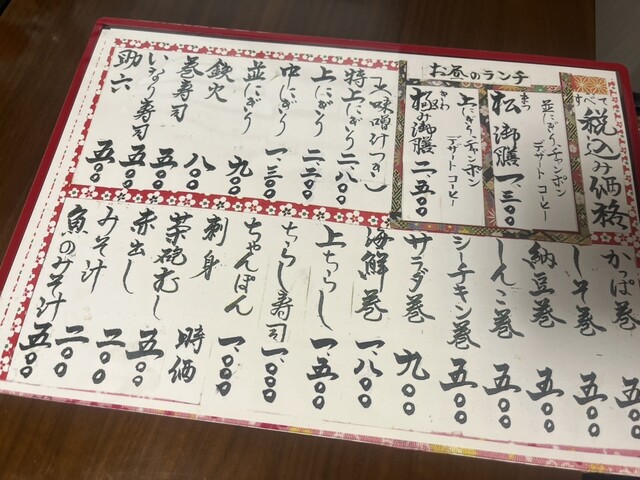 すべて税込み価格
お昼のランチ
松御膳 一、三〇〇
まつ
並にぎり、チャンポン
デザート コーヒー
極み御膳 二、五〇〇
きわ
上にぎり、チャンポン
デザート コーヒー
(味噌汁つき)
特上にぎり 二、八〇〇
上にぎり 二、三〇〇
中にぎり 一、三〇〇
並にぎり 九〇〇
鉄火 八〇〇
巻寿司 五〇〇
いなり寿司 五〇〇
助六 五〇〇
かっぱ巻 五〇〇
しそ巻 五〇〇
納豆巻 五〇〇
しんこ巻 五〇〇
シーチキン巻 五〇〇
サラダ巻 九〇〇
海鮮巻 一、八〇〇
上ちらし 一、五〇〇
ちらし寿司 一、〇〇〇
ちゃんぽん 一、〇〇〇
刺身 時価
茶碗むし 五〇〇
赤出し 二〇〇
みそ汁 二〇〇
魚のみそ汁 五〇〇